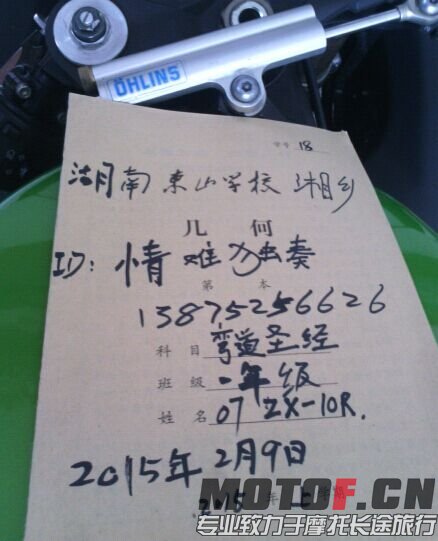 ÖHLINS
学号 18
湖南东山学校 湘乡
几 何
ID: 情难独奏
第 本
13875256626
科 目 弯道圣经
班 级 一年级
姓 名 07 ZX-10R.
2015年2月9日
2015 年 上
MOTOF.CN
专业致力于摩托长途旅行